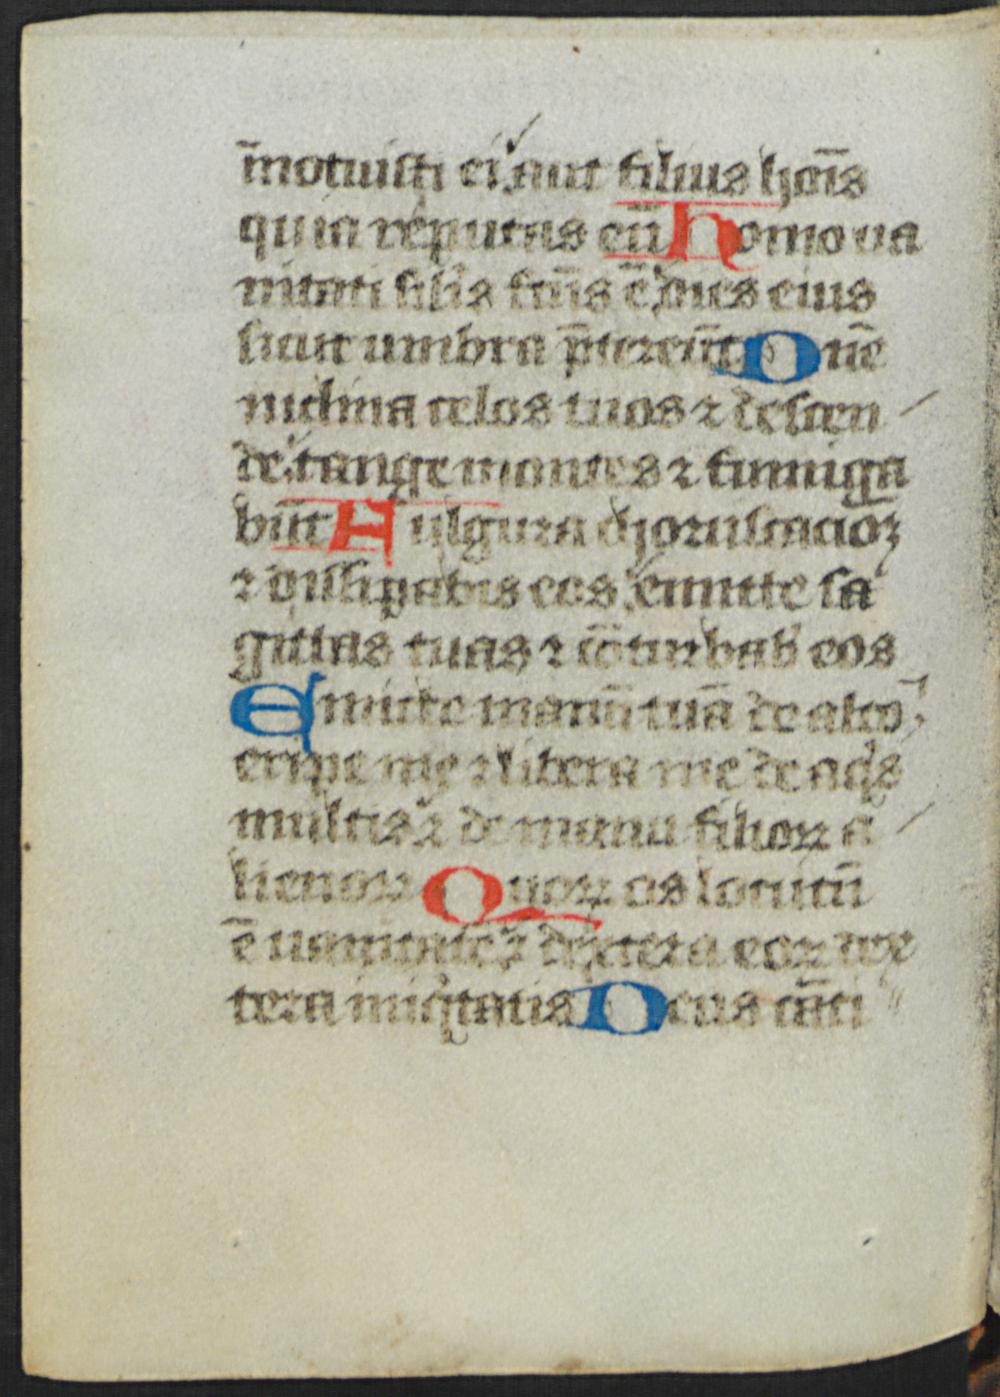 īnotuisti ei aut filius hoīs
quia reputas eū Homo ua
nitati silis fcūs ē dies eius
sicut umbra p̄tereūt Dnē
inclina celos tuos ⁊ descen
de tange montes ⁊ fumiga
būt Fulgura choruscacioꝫ
⁊ dissipabis eos emitte sa
gittas tuas ⁊ cōturbab eos
Emitte manū tuā de alto
eripe me ⁊ libera me de aqs
multis ⁊ de manu filioꝝ a
lienoꝝ Quoꝝ os locutū
ē uanitatē ⁊ dextera eoꝝ dex
tera iniqtatis Deus cāti